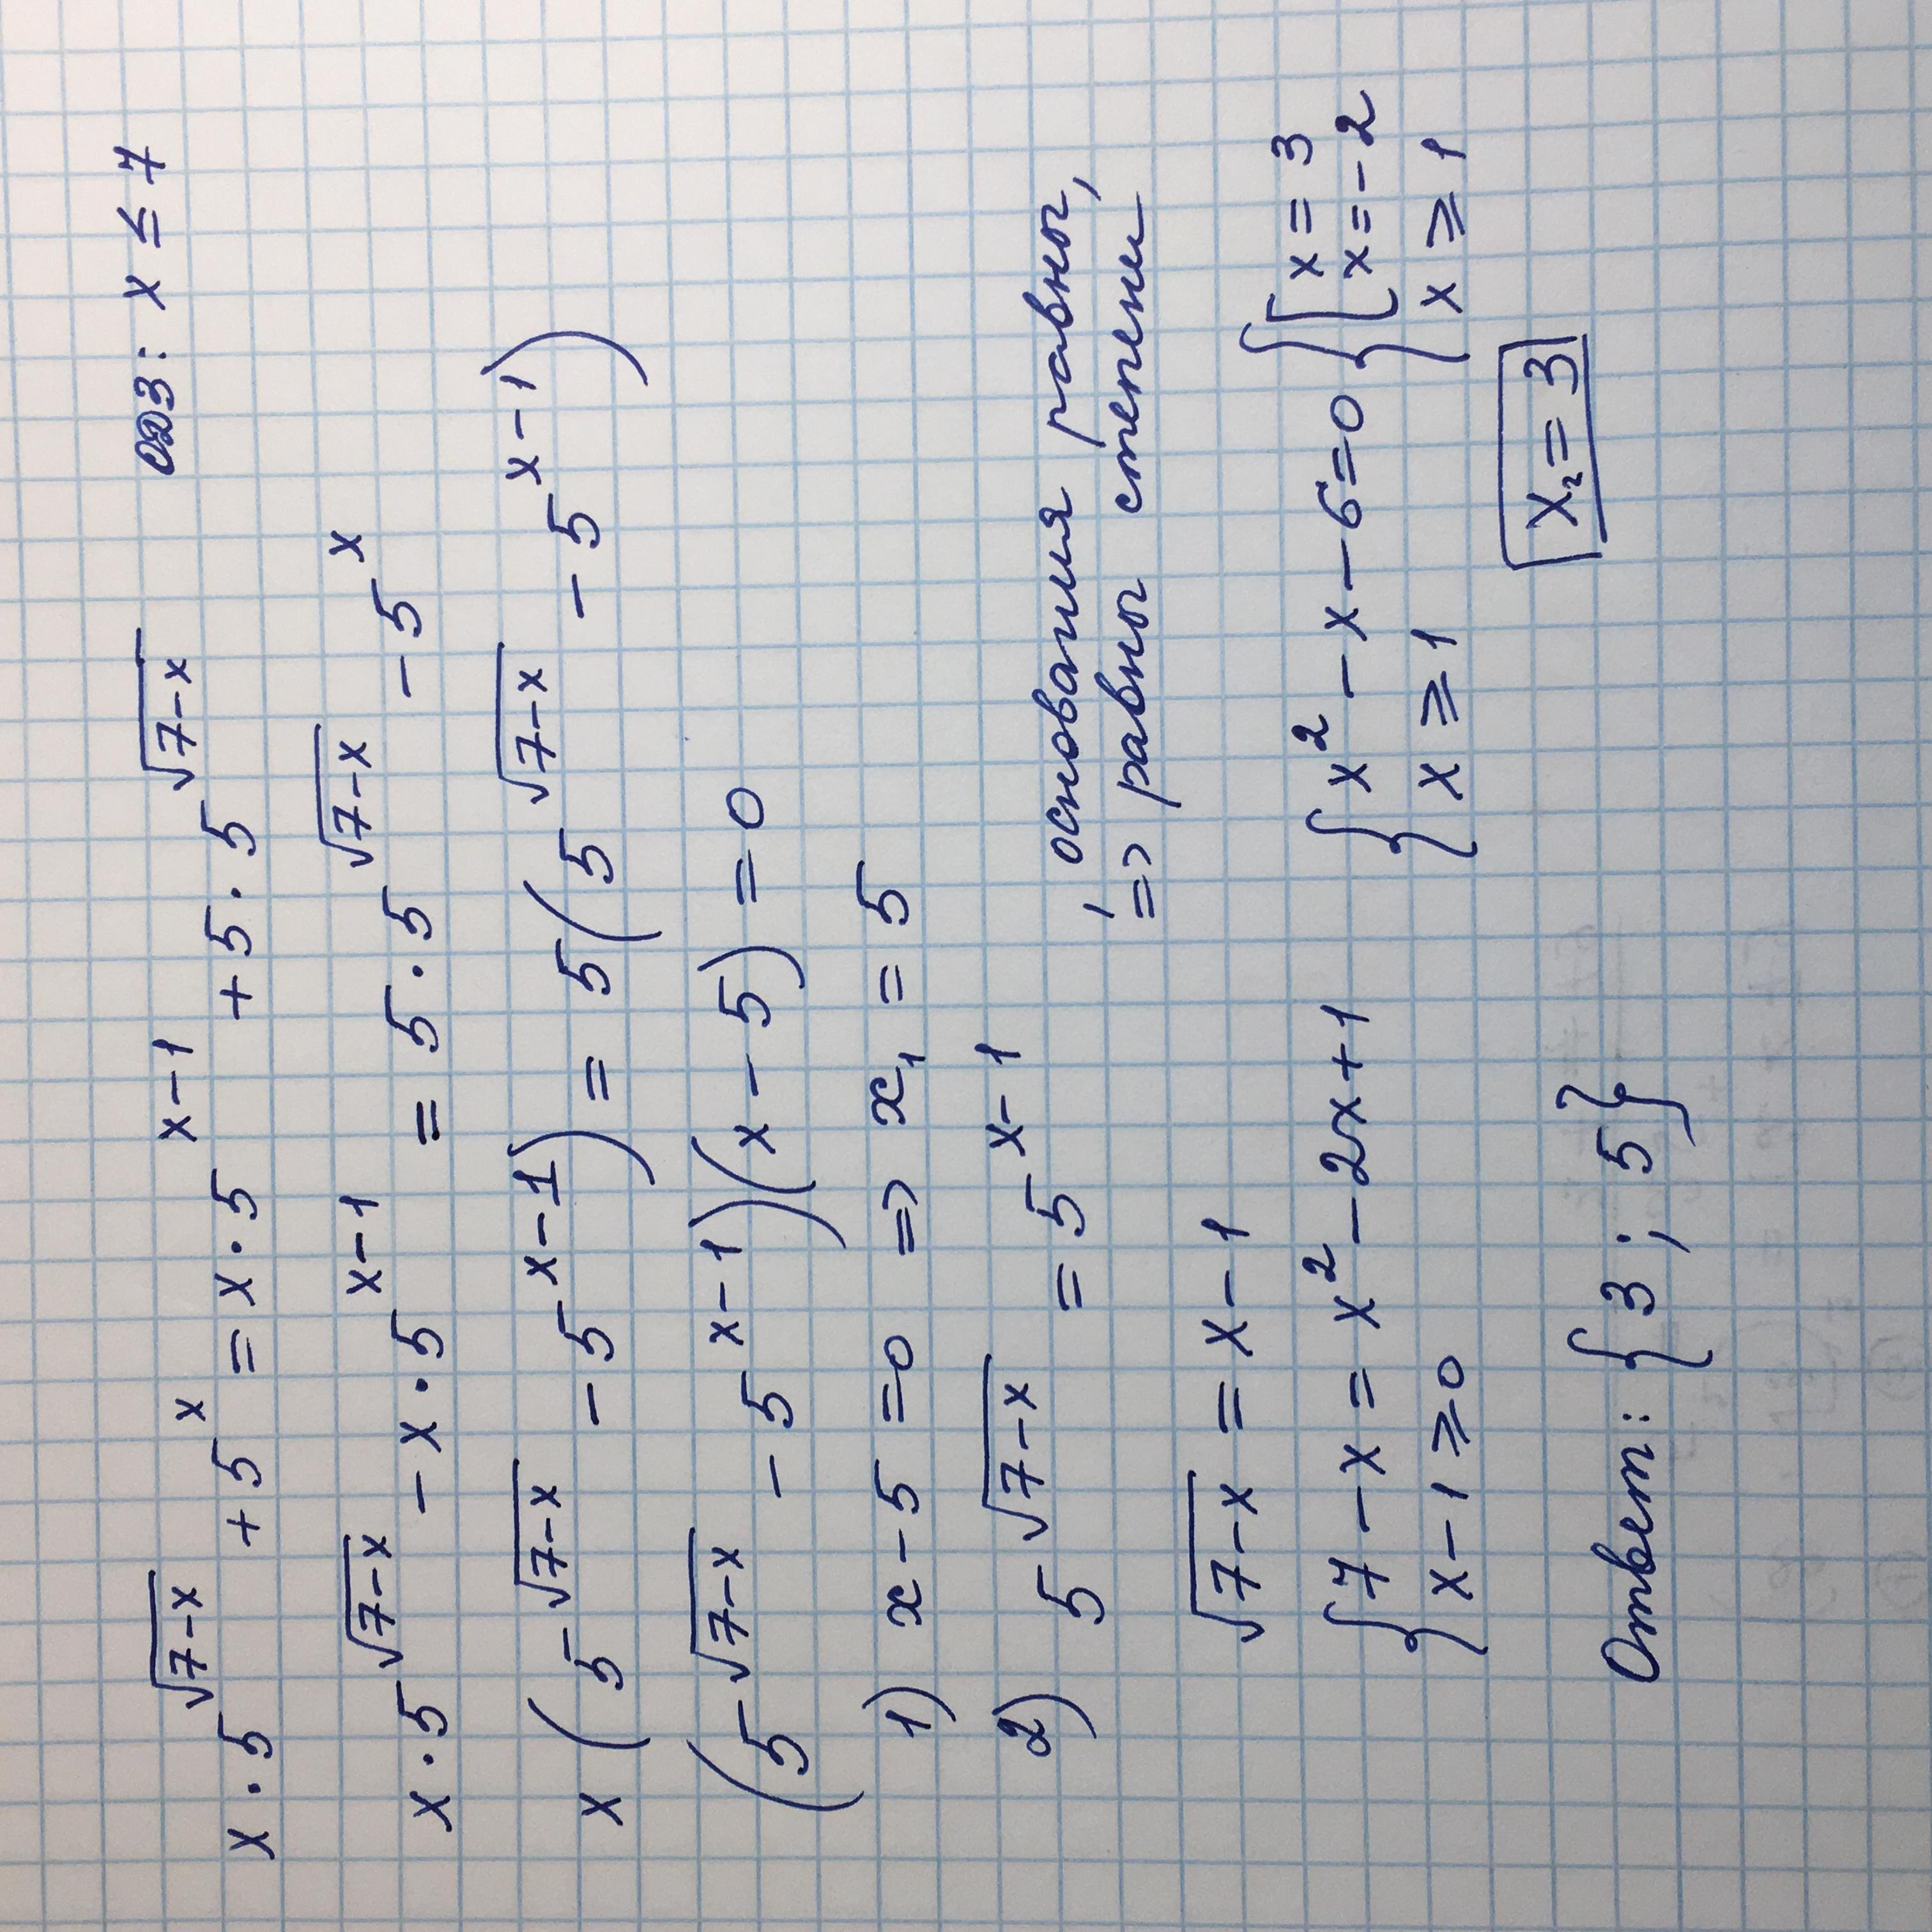 x·5^√(7-x) + 5^x = x·5^(x-1) + 5·5^√(7-x) ОДЗ: x ≤ 7
x·5^√(7-x) - x·5^(x-1) = 5·5^√(7-x) - 5^x
x(5^√(7-x) - 5^(x-1)) = 5(5^√(7-x) - 5^(x-1))
(5^√(7-x) - 5^(x-1))(x-5) = 0
1) x-5=0 => x₁ = 5
2) 5^√(7-x) = 5^(x-1), основания равны,
=> равны степени
√(7-x) = x-1
{7-x = x²-2x+1 {x²-x-6=0 {[x=3
x=-2
x-1 ≥ 0 x ≥ 1 x ≥ 1
x₂=3
Ответ: {3; 5}